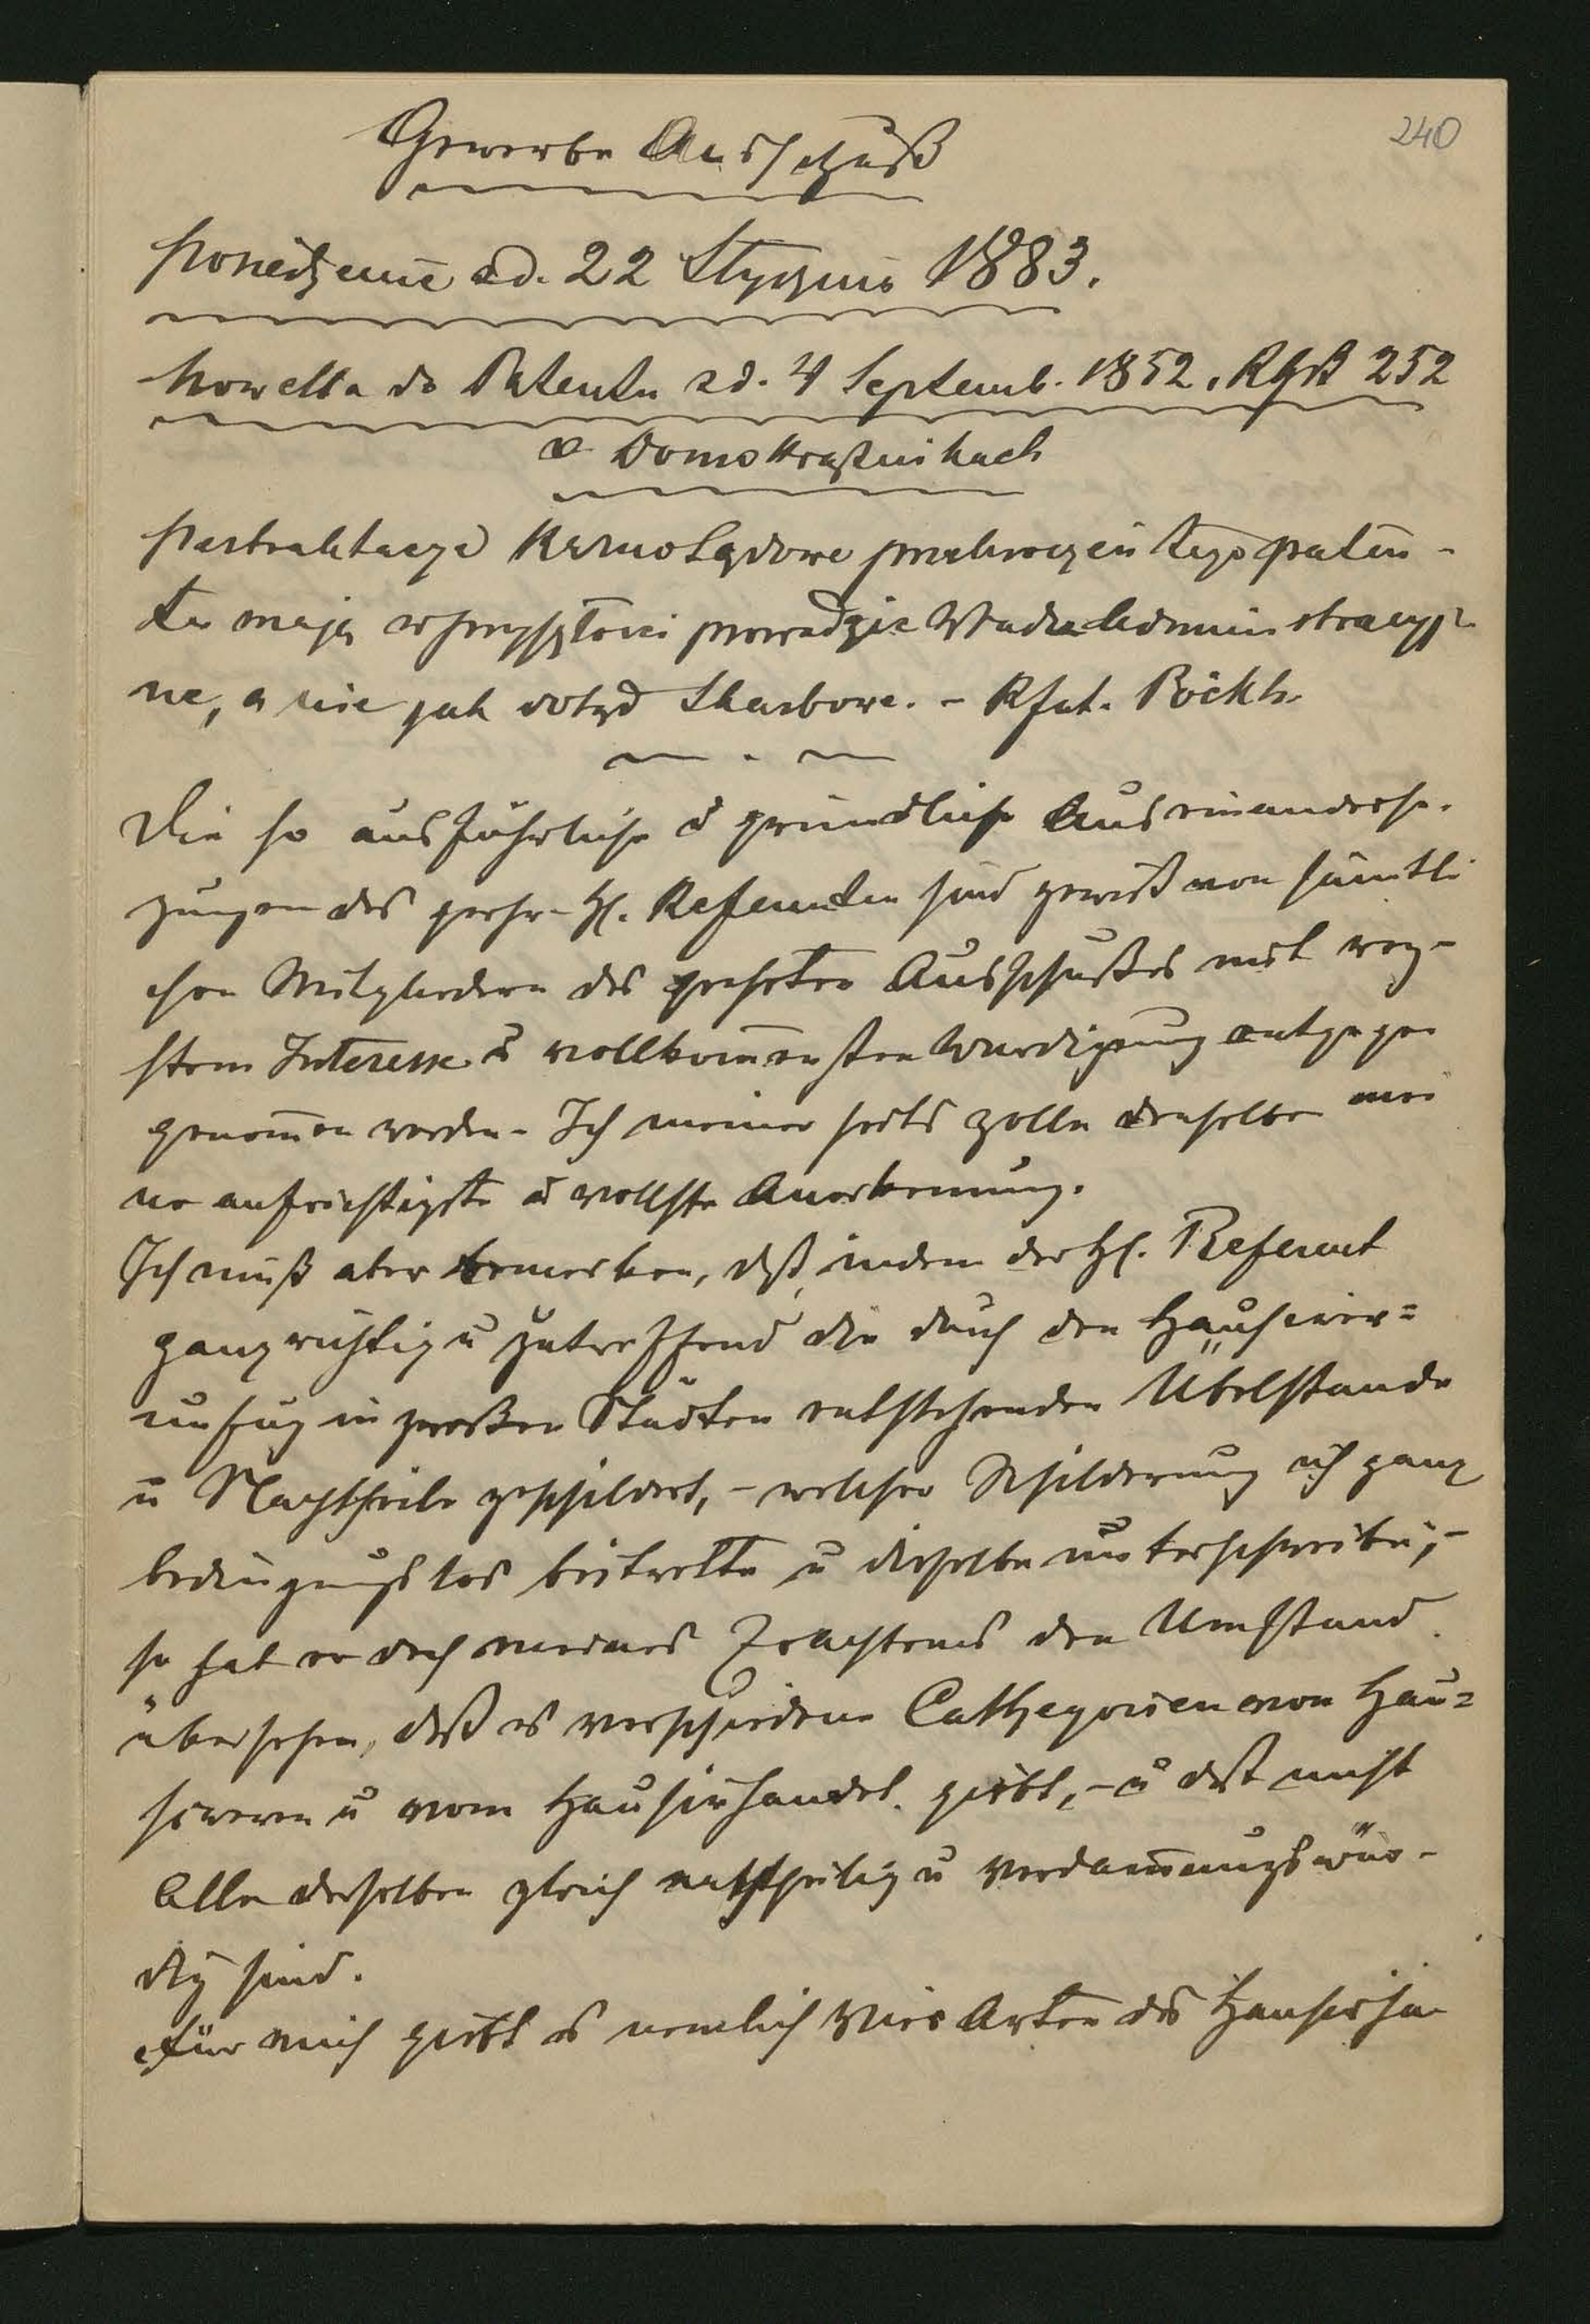 240
Gewerbe Ausschuß
Posiedzenie zd. 22 Stycznia 1883.
Nowella do Patentu zd. 4 Septemb. 1852, RGB 252
o Domokrążnikach
Pertraktacye karno Sądowe przekroczeń tego paten-
tu mają w przyszłości prowadzić Władze Administracyj-
ne, a nie jak dotąd Skarbowe. - Rfnt. Böckh.
Die so ausführliche u gründliche Auseinanderse-
zungen des geehr. H. Referenten sind gewiß von sämtli
chen Mitgliedern des geehrten Ausschußes mit reg-
stem Interesse u vollkomensten Würdigung entgegen
genomen worden - Ich meiner seits zolle denselben mei
ne aufrichtigste u vollste Anerkenung.
Ich muß aber bemerken, dß, indem der H. Referent
ganz richtig u zutreffend die durch den Hausirer=
unfug in großen Städten entstehenden Übelstände
u Nachtheile geschildert, - welcher Schilderung ich ganz
bedingungslos beitrette u dieselbe unterschreibe, -
so hat er doch meines Erachtens den Umstand
übersehen, daß es verschiedene Cathegorien von Hau=
sirern u vom Hausirhandel giebt, - u daß nicht
Alle derselben gleich nachtheilig u verdamungswür-
dig sind.
Für mich giebt es nemlich vier Arten des Hausirha